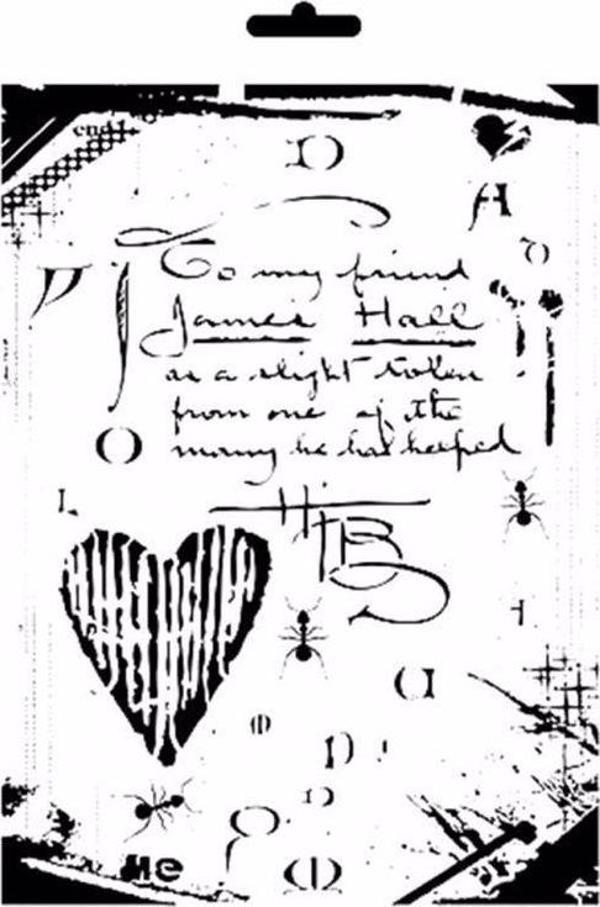 end
D
A
To my friend
James Hall
as a slight token
from one of the
many he has helped
HB
O
He